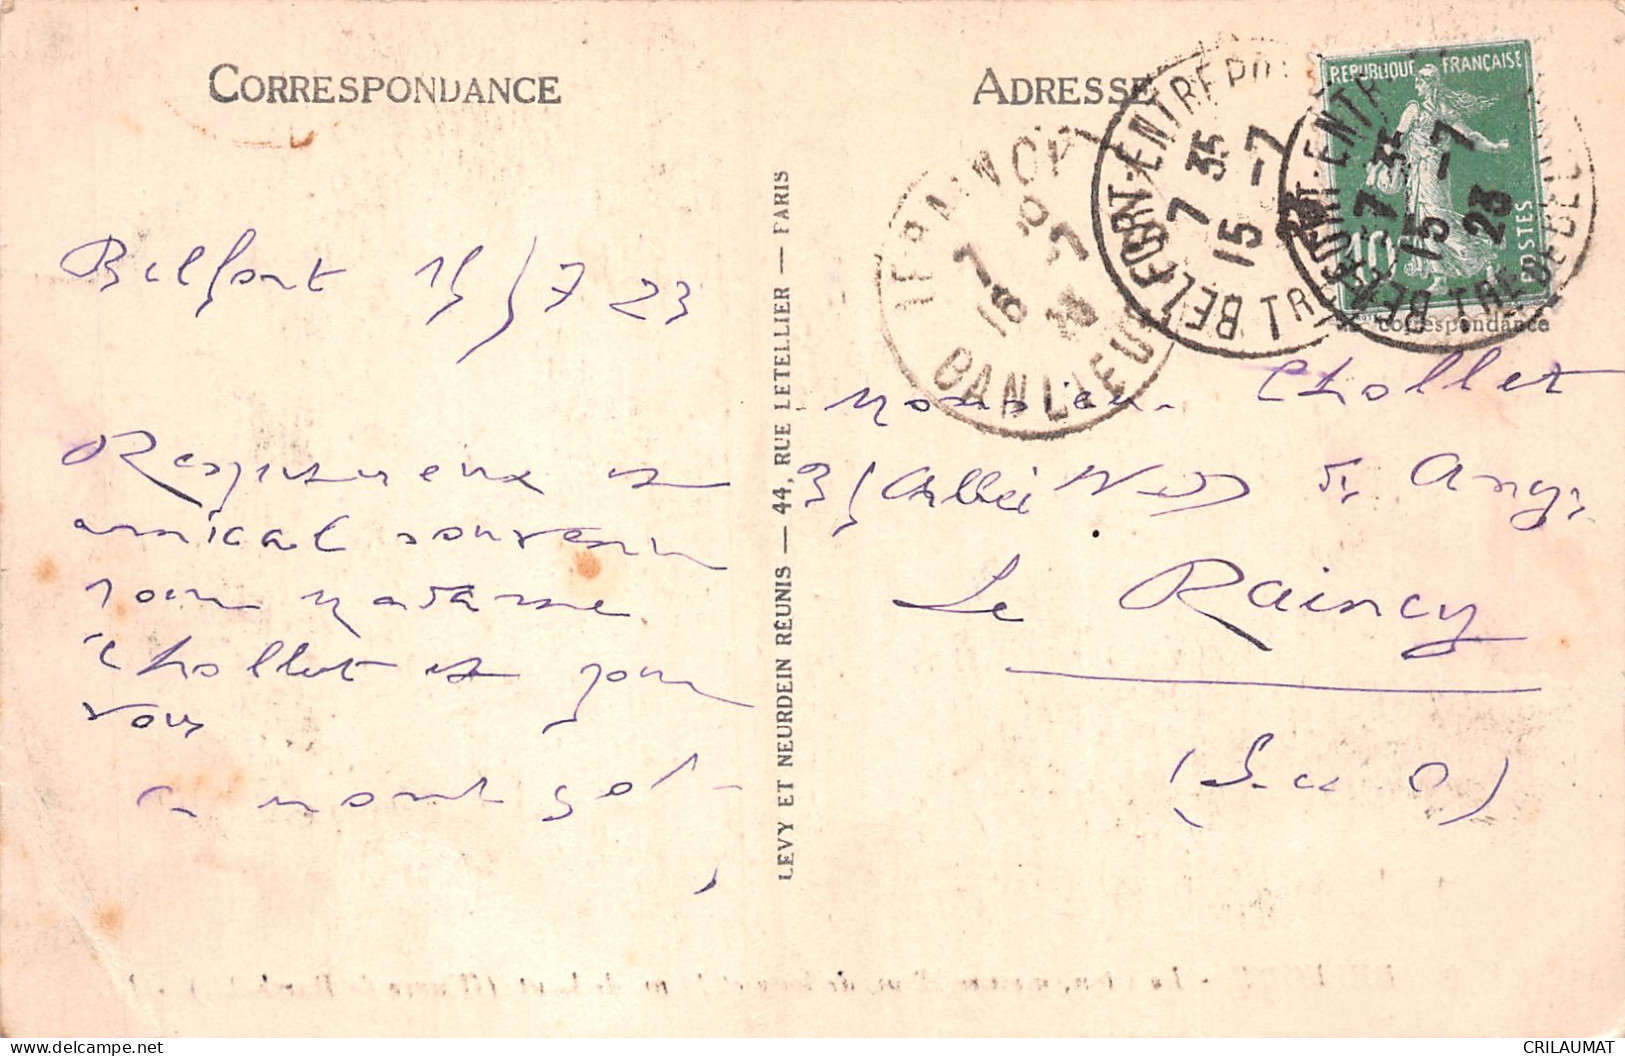 CORRESPONDANCE
ADRESSE
Belfort 15/7 23
Respectueux et
amical souvenir
pour Madame
Chollet et pour
vous
LEVY ET NEURDEIN REUNIS — 44, RUE LETELLIER — PARIS
Monsieur Chollet
3/ Allée
Le Raincy
(S. et O)
REPUBLIQUE FRANÇAISE
10
POSTES
correspondance
BELFORT-ENTREPOT
7 35
15 -7
23
BELFORT-ENTREPOT
7 35
15 -7
23
LE RAINCY
BANLIEUE
CRILAUMAT